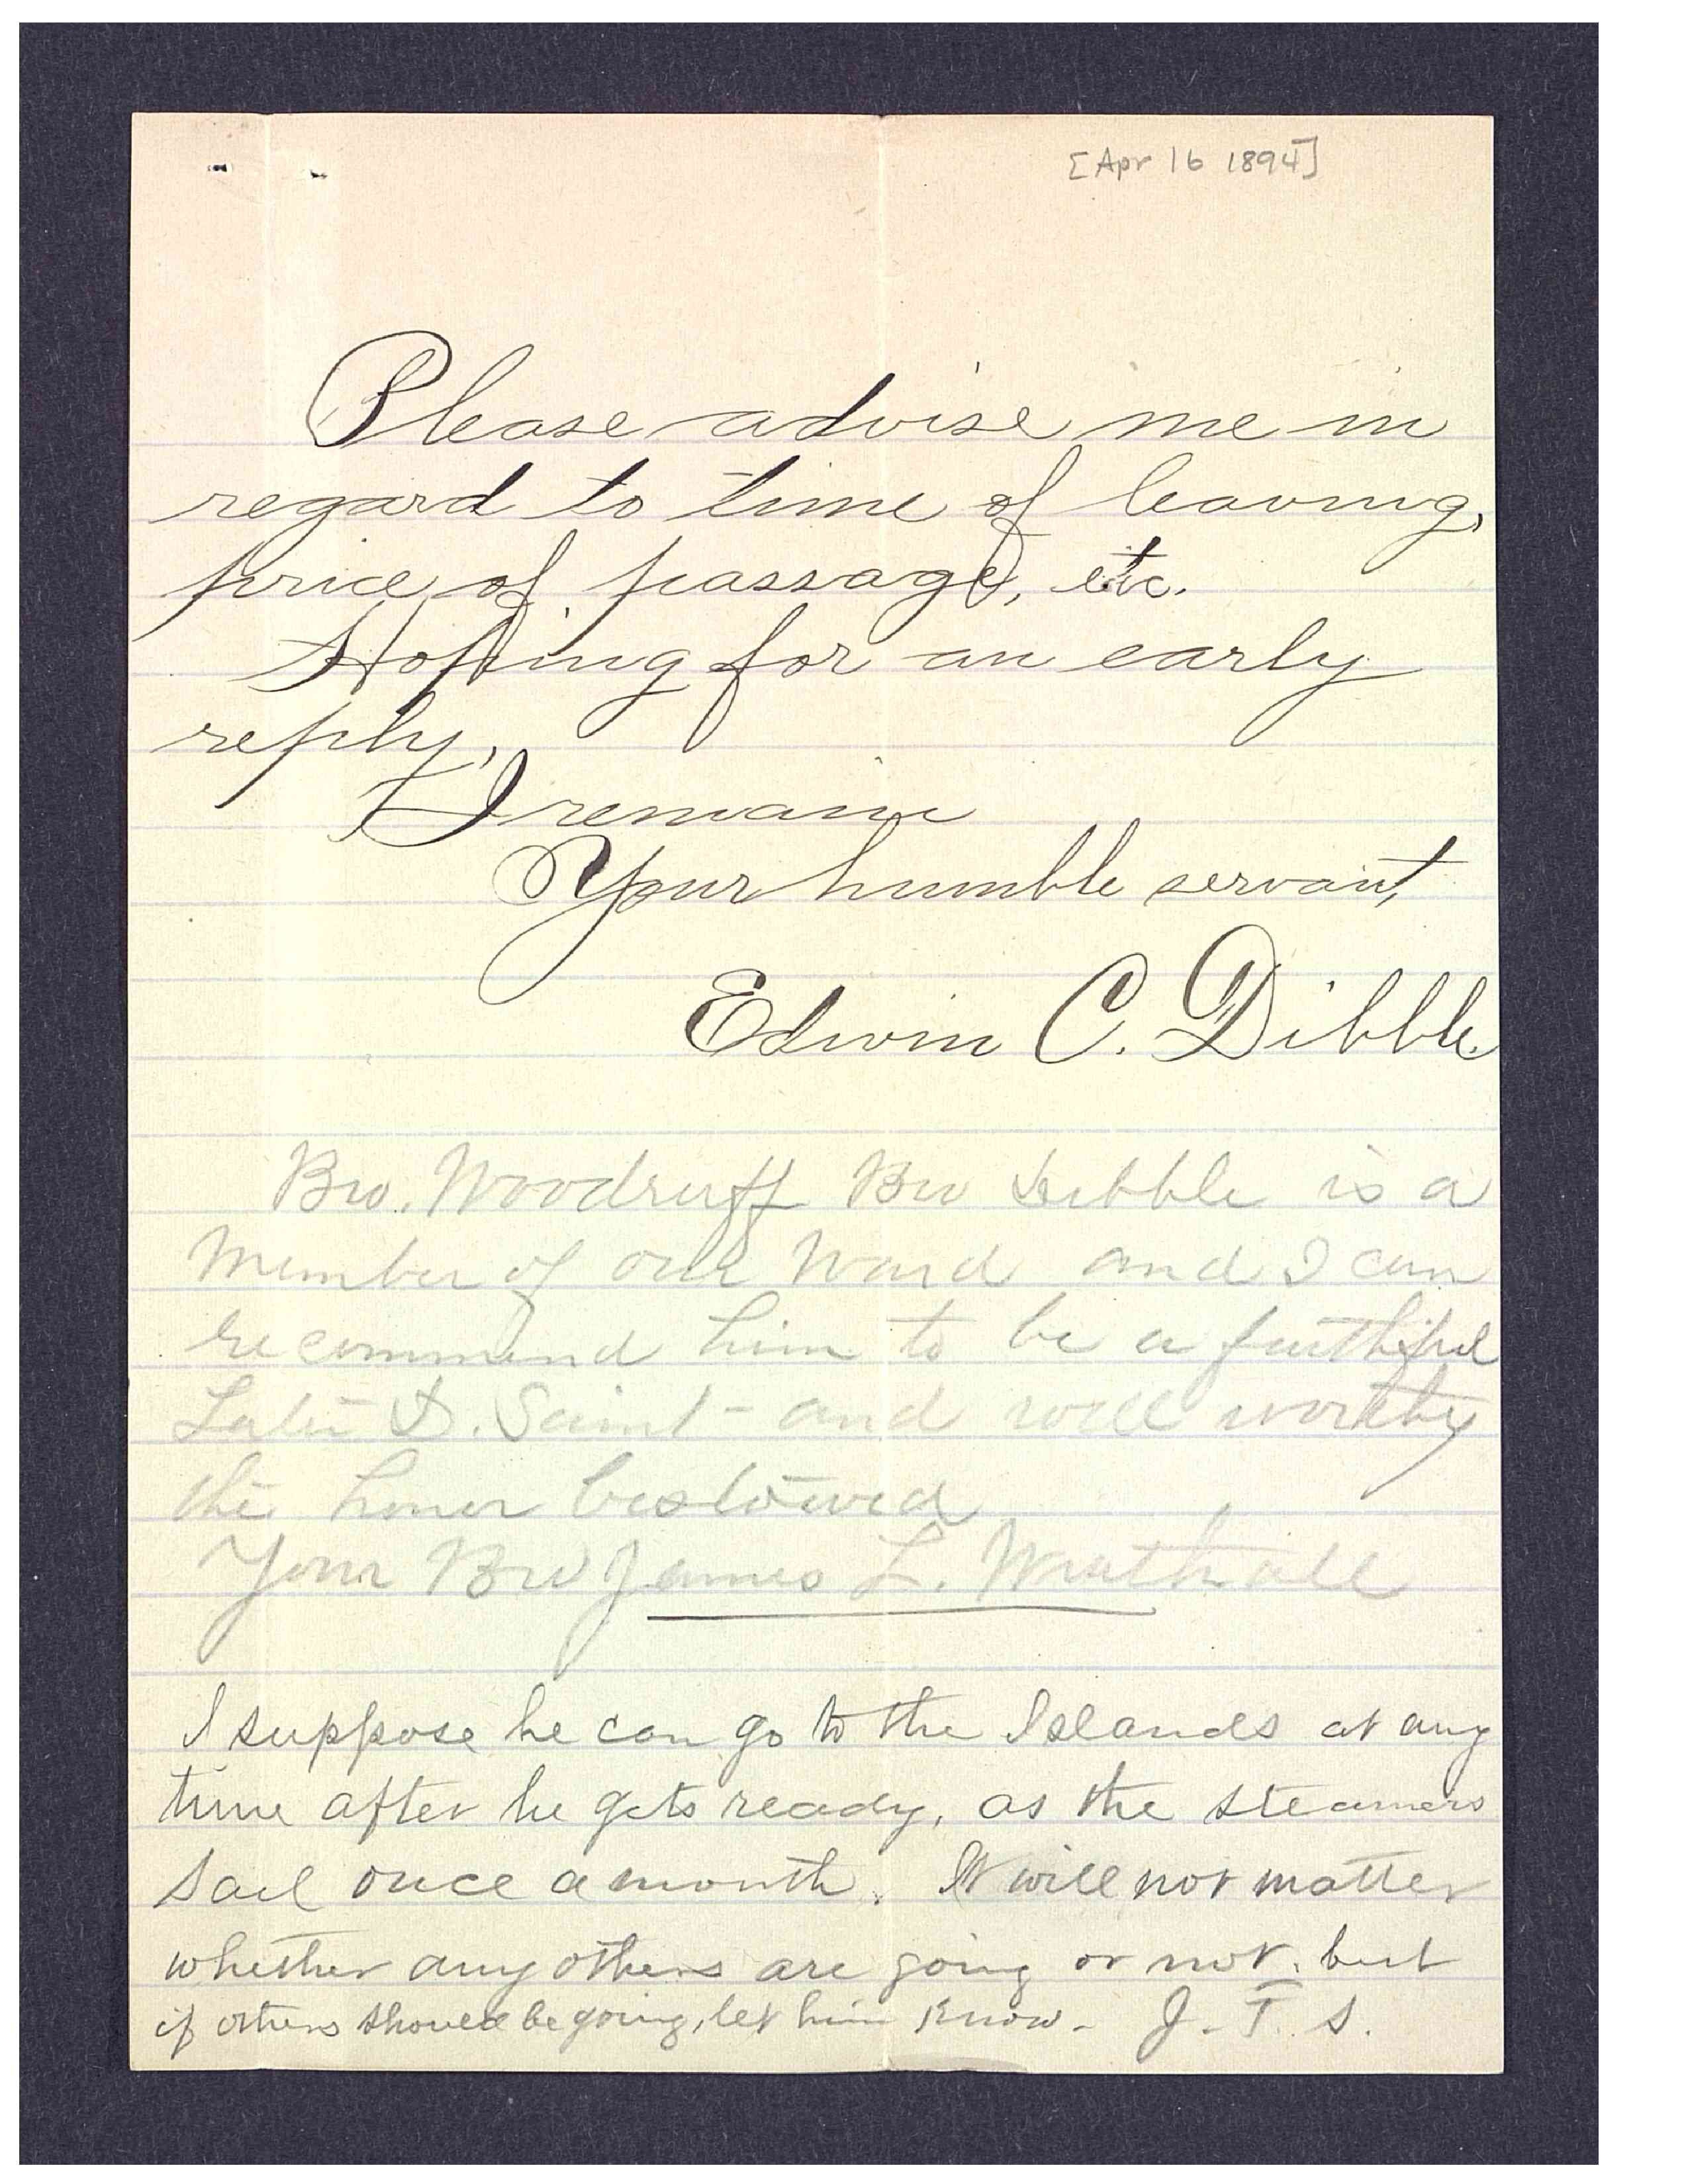 [Apr 16 1894]
Please advise me in
regard to time of leaving,
price of passage, etc.
Hoping for an early
reply,
I remain
Your humble servant,
Edwin C. Dibble.
Bro. Woodruff Bro Dibble is a
Member of our Ward and I can
recommend him to be a faithful
Latter D. Saint - and well worthy
the honor bestowed
Your Bro James L. Wrathall
I suppose he can go to the Islands at any
time after he gets ready, as the steamers
sail once a month. It will not matter
whether any others are going or not. but
if others should be going, let him know. J. F. S.